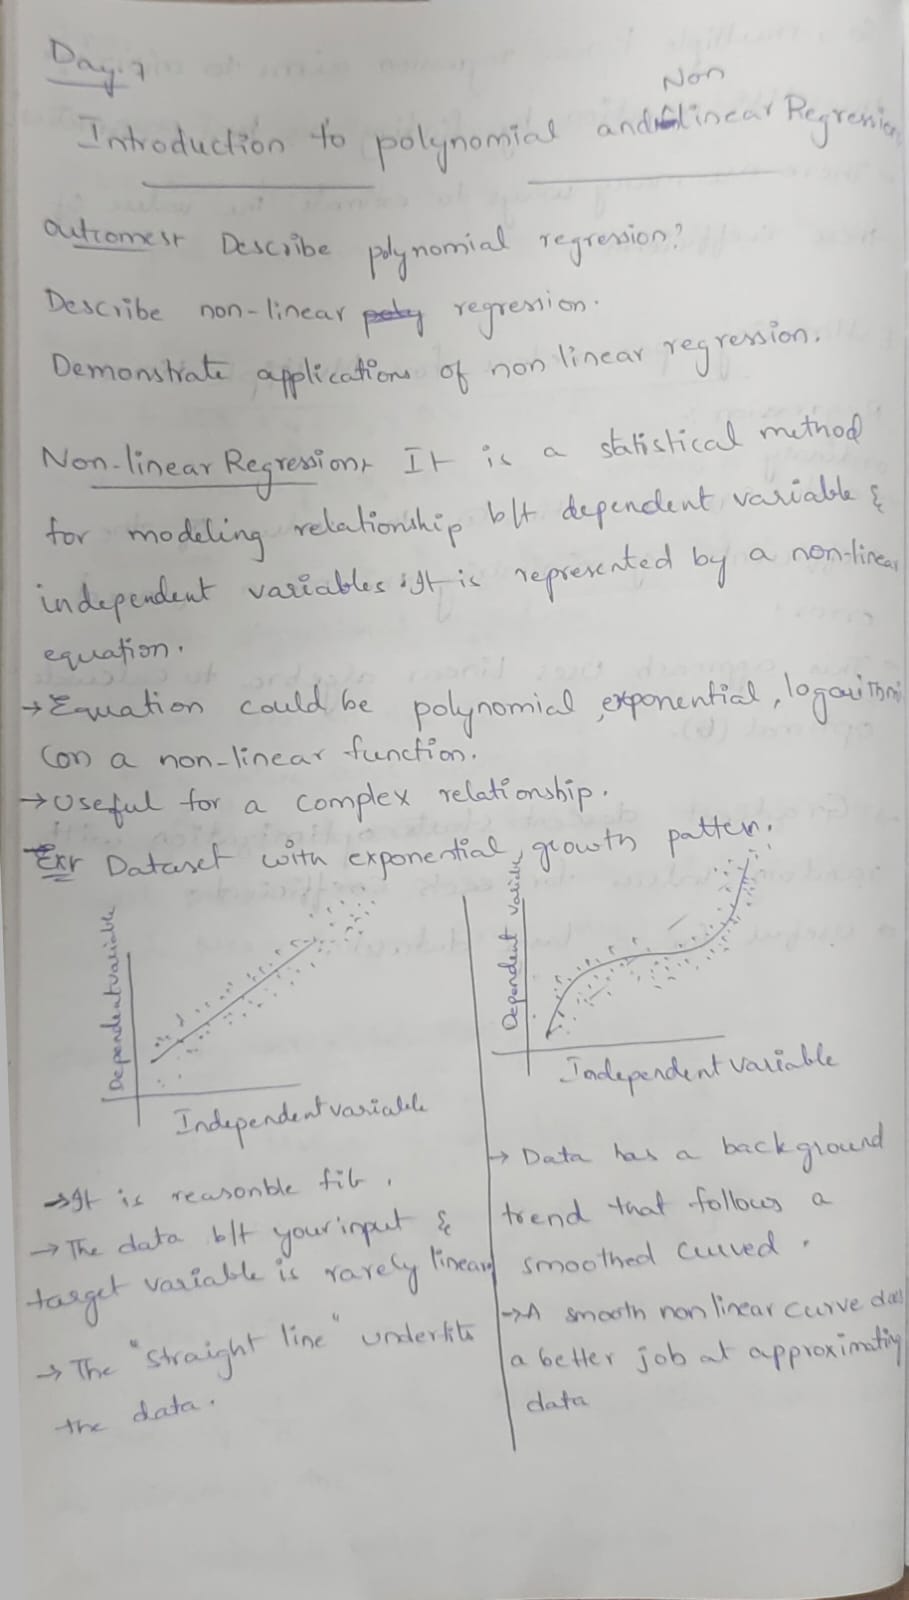 Day-7
Non
Introduction to polynomial and linear Regression
Outcomes:- Describe polynomial regression?
Describe non-linear poly regression.
Demonstrate applications of non linear regression.
Non-linear Regression:- It is a statistical method
for modeling relationship b/t dependent variable &
independent variables. It is represented by a non-linear
equation.
→ Equation could be polynomial, exponential, logarithmi
(or) a non-linear function.
→ Useful for a complex relationship.
Ex:- Dataset with exponential growth patter.
Dependent variable
Independent variable
→ It is reasonble fit.
→ The data b/t your input &
target variable is rarely linear
→ The "straight line" underfits
the data.
Dependent variable
Independent variable
→ Data has a background
trend that follows a
smoothed curved.
→ A smooth non linear curve does
a better job at approximating
data